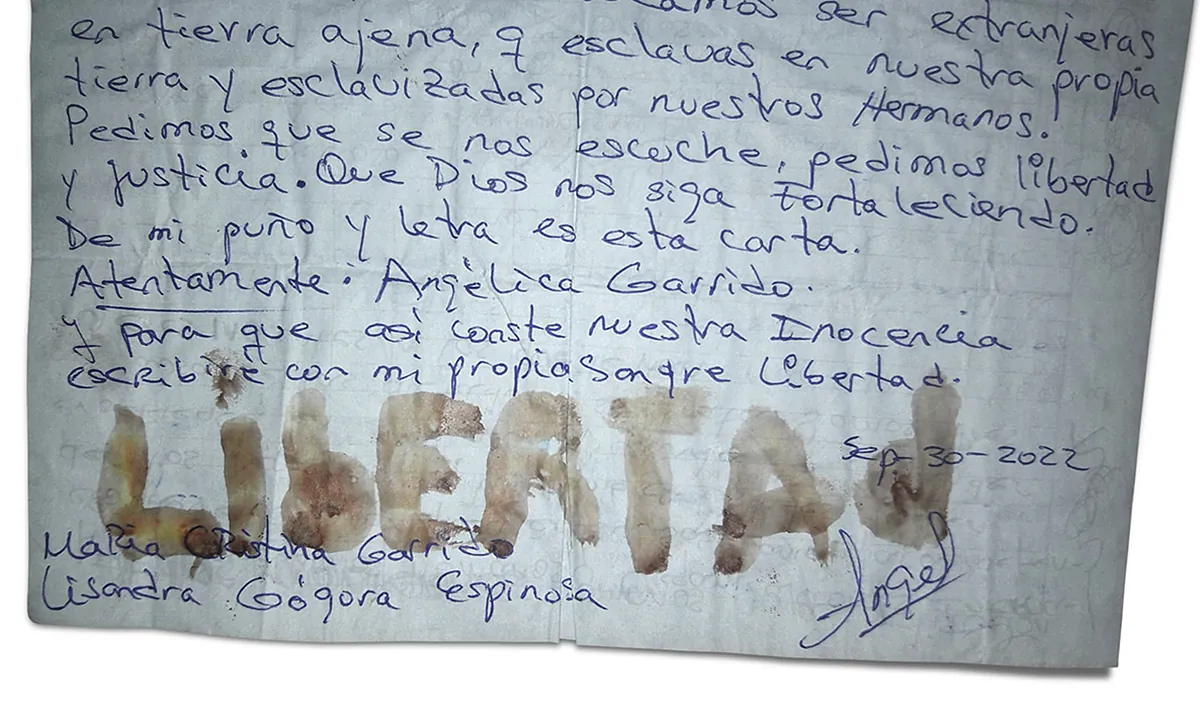 ser extranjeras
en tierra ajena, q esclavas en nuestra propia
tierra y esclavizadas por nuestros Hermanos.
Pedimos que se nos escuche, pedimos libertad
y justicia. Que Dios nos siga Fortaleciendo.
De mi puño y letra es esta carta.
Atentamente: Angèlica Garrido.
y para que así conste nuestra Inocencia
escribiré con mi propia Sangre Libertad.
LibERTAd
Sep-30-2022
Maria CRistina Garrido
Lisandra Gógora Espinosa
Angel